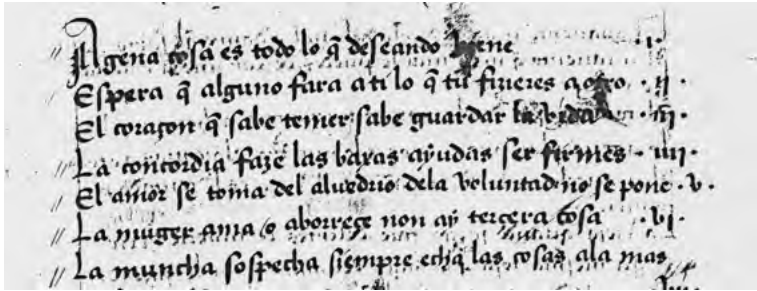 Agena cosa es todo lo q̃ deseando viene · i ·
Espera q̃ alguno fara a ti lo q̃ tu fizieres a otro · ii ·
El coraçon q̃ sabe temer sabe guardar la vida · iii ·
La concordia faze las baxas ayudas ser firmes · iiii ·
El amor se toma del aluedrio dela voluntad no se pone · v ·
La muger ama o aborreçe non ay terçera cosa · vi ·
La muncha sospecha siempre echa las cosas ala mas